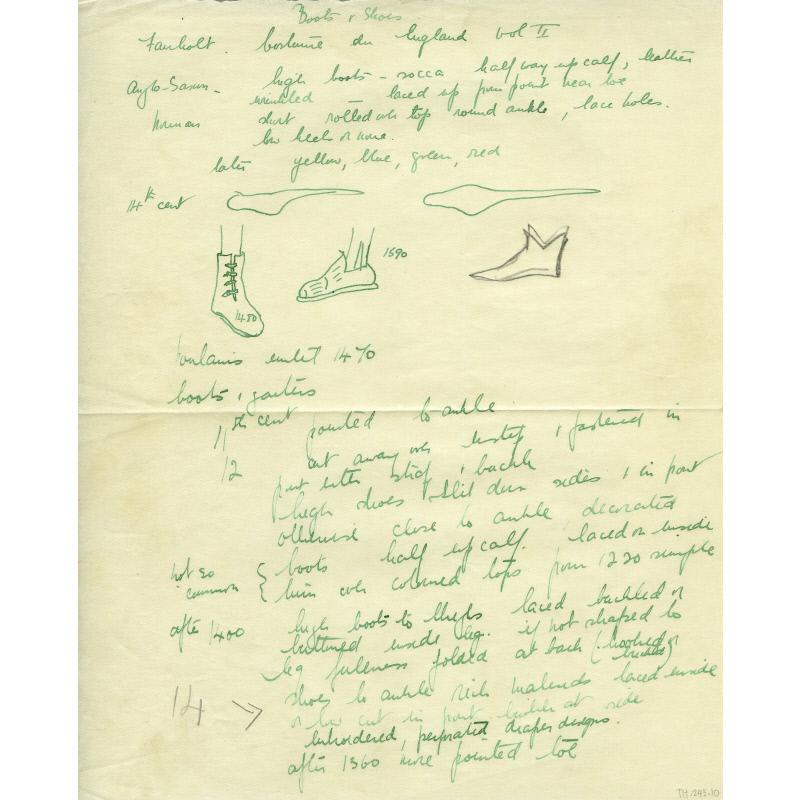 Boots & Shoes
Fairholt. Costume in England vol II
Anglo-Saxon - high boots - socca half way up calf, leather
wrinkled laced up from point near toe
Norman short rolled over top round ankle, lace holes.
low heels or none.
later yellow, blue, green, red
14th cent
1590
1480
1470
boots & gaiters
11th cent pointed to ankle
12 cut away over instep & fastened in
front with strap & buckle
high shoes slit down sides & in front
otherwise close to ankle decorated
not so common { boots half up calf. laced on inside
turn over coloured tops from 1220 simple
after 1400 high boots to thighs laced buckled or
buttoned inside leg. if not shaped to
leg fulness folded at back (hooked or
buckled)
14 → shoes to ankle rich materials laced inside
or low cut in front buckle at side
embroidered, perforated diaper designs.
after 1360 more pointed toe
TH.245.10